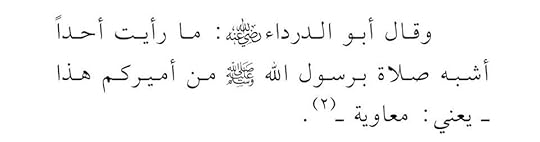 وقال أبو الدرداء رضي الله عنه: ما رأيت أحداً
أشبه صلاة برسول الله ﷺ من أميركم هذا
ـ يعني: معاوية ـ(٢).